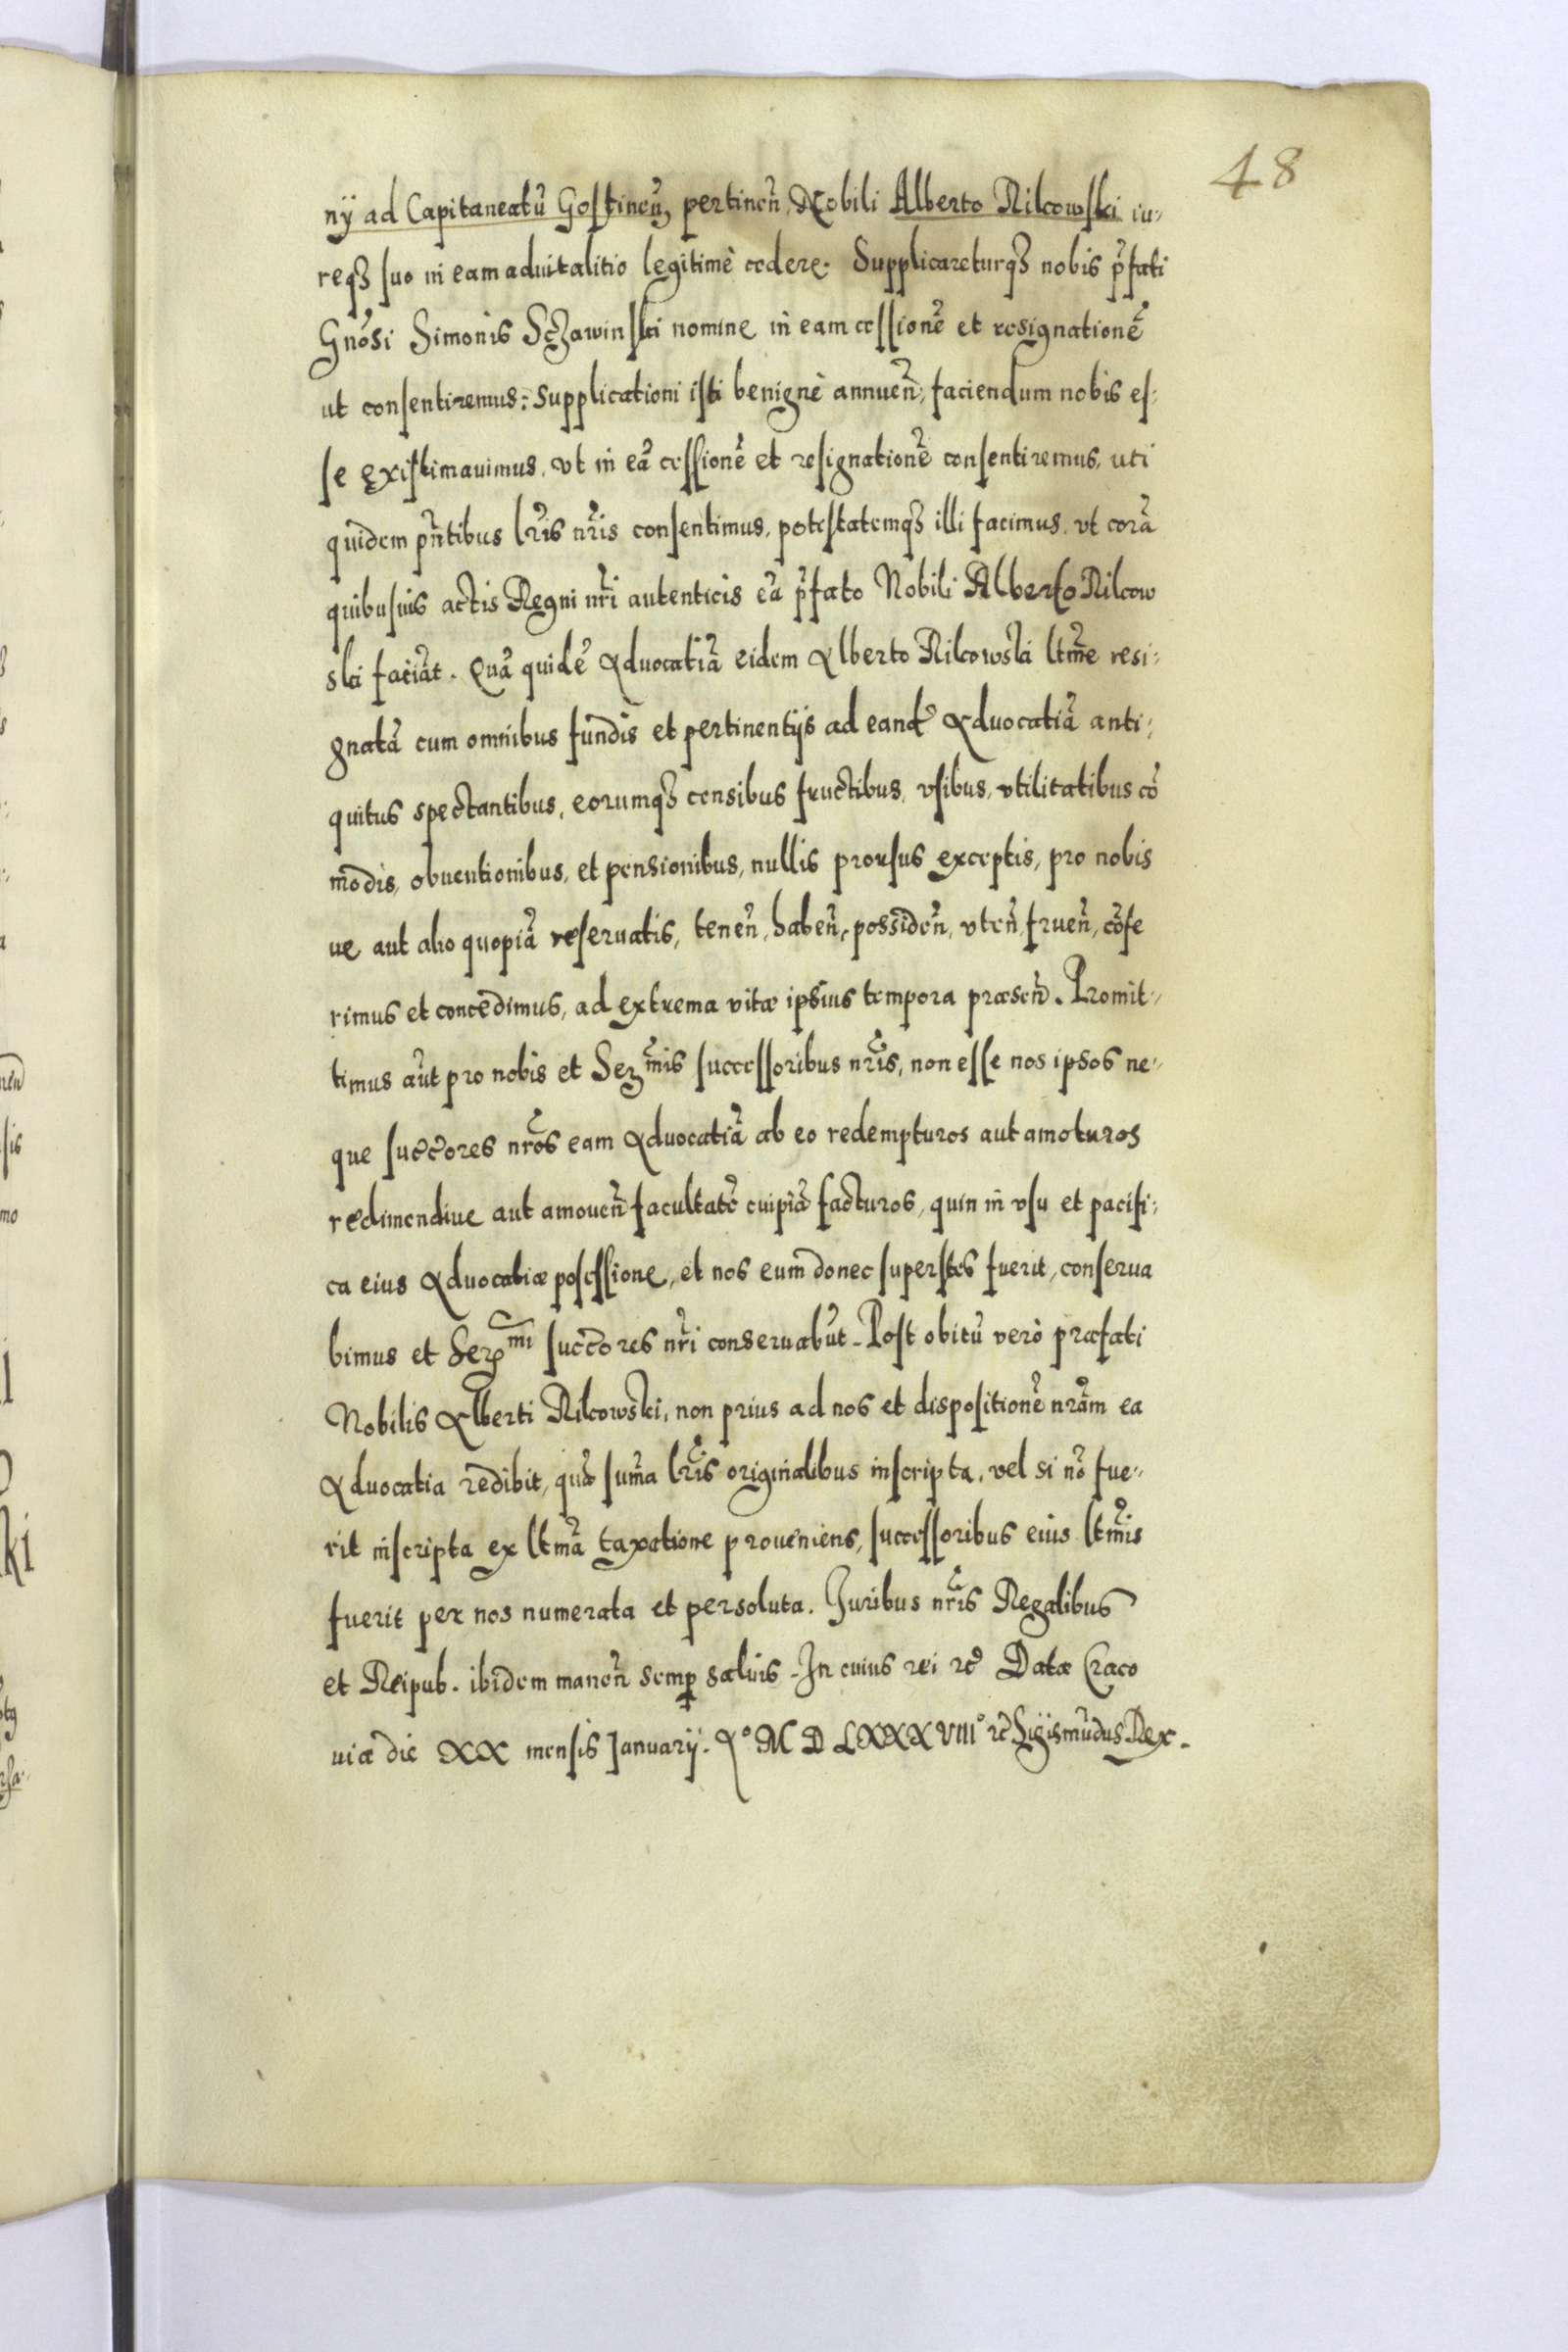 48
nÿ ad Capitaneatũ Gostineñ, pertineñ, Nobili Alberto Rilcowski iu⸗
reqȝ suo in eam aduitalitio legitimè cedere. Supplicareturqȝ nobis p̃fati
Gnõsi Simonis Sczawinski nomine in eam cessionẽ et resignationẽ
ut consentiremus: Supplicationi isti benignè annueñ, faciendum nobis es⸗
se existimauimus, vt in eã cessionẽ et resignationẽ consentiremus, uti
quidem pñtibus lr̃is nr̃is consentimus, potestatemqȝ illi facimus, vt corã
quibusuis actis Regni nr̃i autenticis eã p̃fato Nobili Alberto Rilcow
ski faciãt. Quã quidẽ Aduocatiã eidem Alberto Rilcowski ltm̃e resi⸗
gnatã cum omnibus fundis et pertinentijs ad eand̃ Aduocatiã anti⸗
quitus spectantibus, eorumqȝ censibus fructibus, vsibus, vtilitatibus cõ
modis, obuentionibus, et pensionibus, nullis prorsus exceptis, pro nobis
ue aut alio quopiã reseruatis, teneñ, habeñ, possideñ, vteñ, frueñ, cõfe
rimus et concedimus, ad extrema vitæ ipsius tempora præseñ. Promit⸗
timus aũt pro nobis et Serᵐⁱˢ successoribus nr̃is, non esse nos ipsos ne⸗
que succ̃ores nr̃os eam Aduocatiã ab eo redempturos aut amoturos
redimendiue aut amoueñ facultatẽ cuipiã facturos, quin in vsu et pacifi⸗
ca eius Aduocatiæ posessione, et nos eum donec superstes fuerit, conserua
bimus et Serᵐⁱ succ̃ores nr̃i conseruabũt. Post obitũ verò præfati
Nobilis Alberti Rilcowski, non prius ad nos et dispositionẽ nr̃am ea
Aduocatia redibit, quã sum̃a lr̃is originalibus inscripta, vel si nõ fue⸗
rit inscripta ex ltm̃a taxatione proueniens, successoribus eius ltm̃is
fuerit per nos numerata et persoluta. Juribus nr̃is Regalibus
et Reipub. ibidem maneñ semꝑ saluis. In cuius rei rc̃ Datæ Craco
uiæ die XX mensis Januarij. A° M D LXXXVIII° rc̃ Sigismũdus Rex.